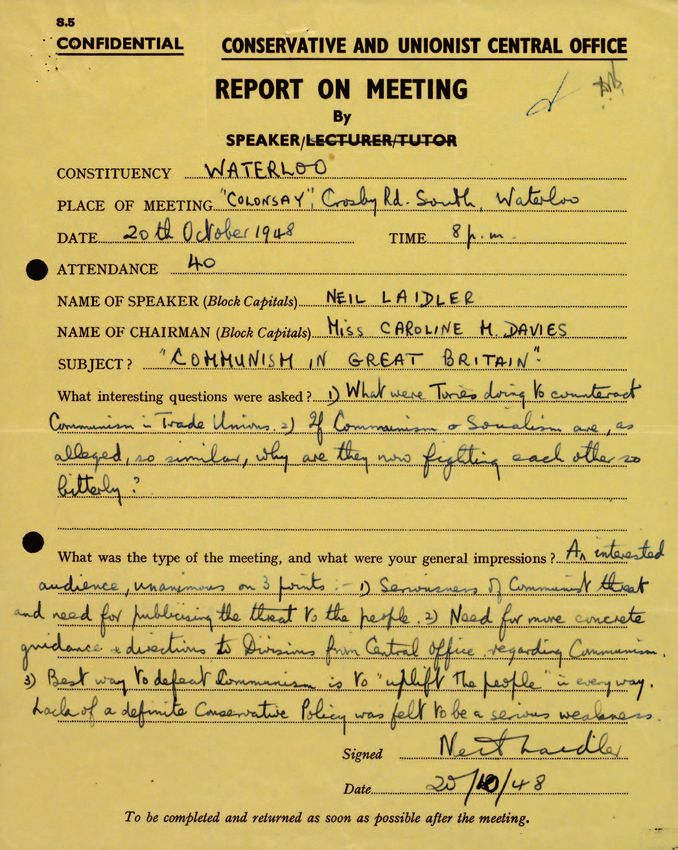 S.5
CONFIDENTIAL CONSERVATIVE AND UNIONIST CENTRAL OFFICE
REPORT ON MEETING
By
SPEAKER/LECTURER/TUTOR
CONSTITUENCY WATERLOO
PLACE OF MEETING "COLONSAY", Crosby Rd. South, Waterloo
DATE 20th October 1948 TIME 8 p.m.
ATTENDANCE 40
NAME OF SPEAKER (Block Capitals) NEIL LAIDLER
NAME OF CHAIRMAN (Block Capitals) Miss CAROLINE M. DAVIES
SUBJECT? "COMMUNISM IN GREAT BRITAIN".
What interesting questions were asked? 1) What were Tories doing to counteract
Communism in Trade Unions. 2) If Communism & Socialism are, as
alleged, so similar, why are they now fighting each other so
bitterly?
What was the type of the meeting, and what were your general impressions? An interested
audience, unanimous on 3 points :- 1) Seriousness of Communist threat
and need for publicising the threat to the people. 2) Need for more concrete
guidance & directions to Divisions from Central Office regarding Communism.
3) Best way to defeat Communism is to "uplift the people" in every way.
Lack of a definite Conservative Policy was felt to be a serious weakness.
Signed Neil Laidler
Date 20/10/48
To be completed and returned as soon as possible after the meeting.